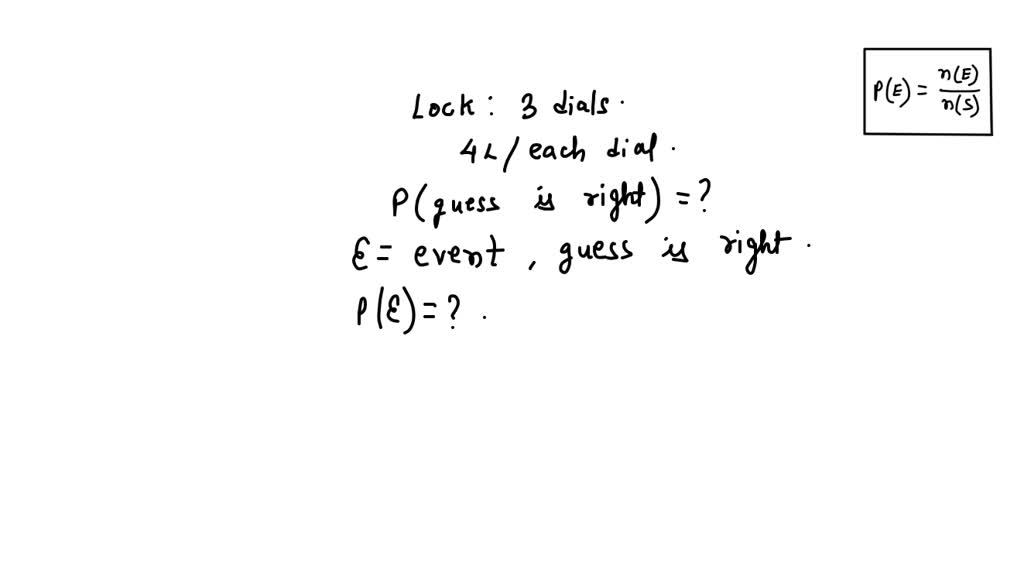 Lock: 3 dials.
4L / each dial.
P(guess is right) = ?
E = event, guess is right.
P(E) = ?.
P(E) = n(E)/n(S)